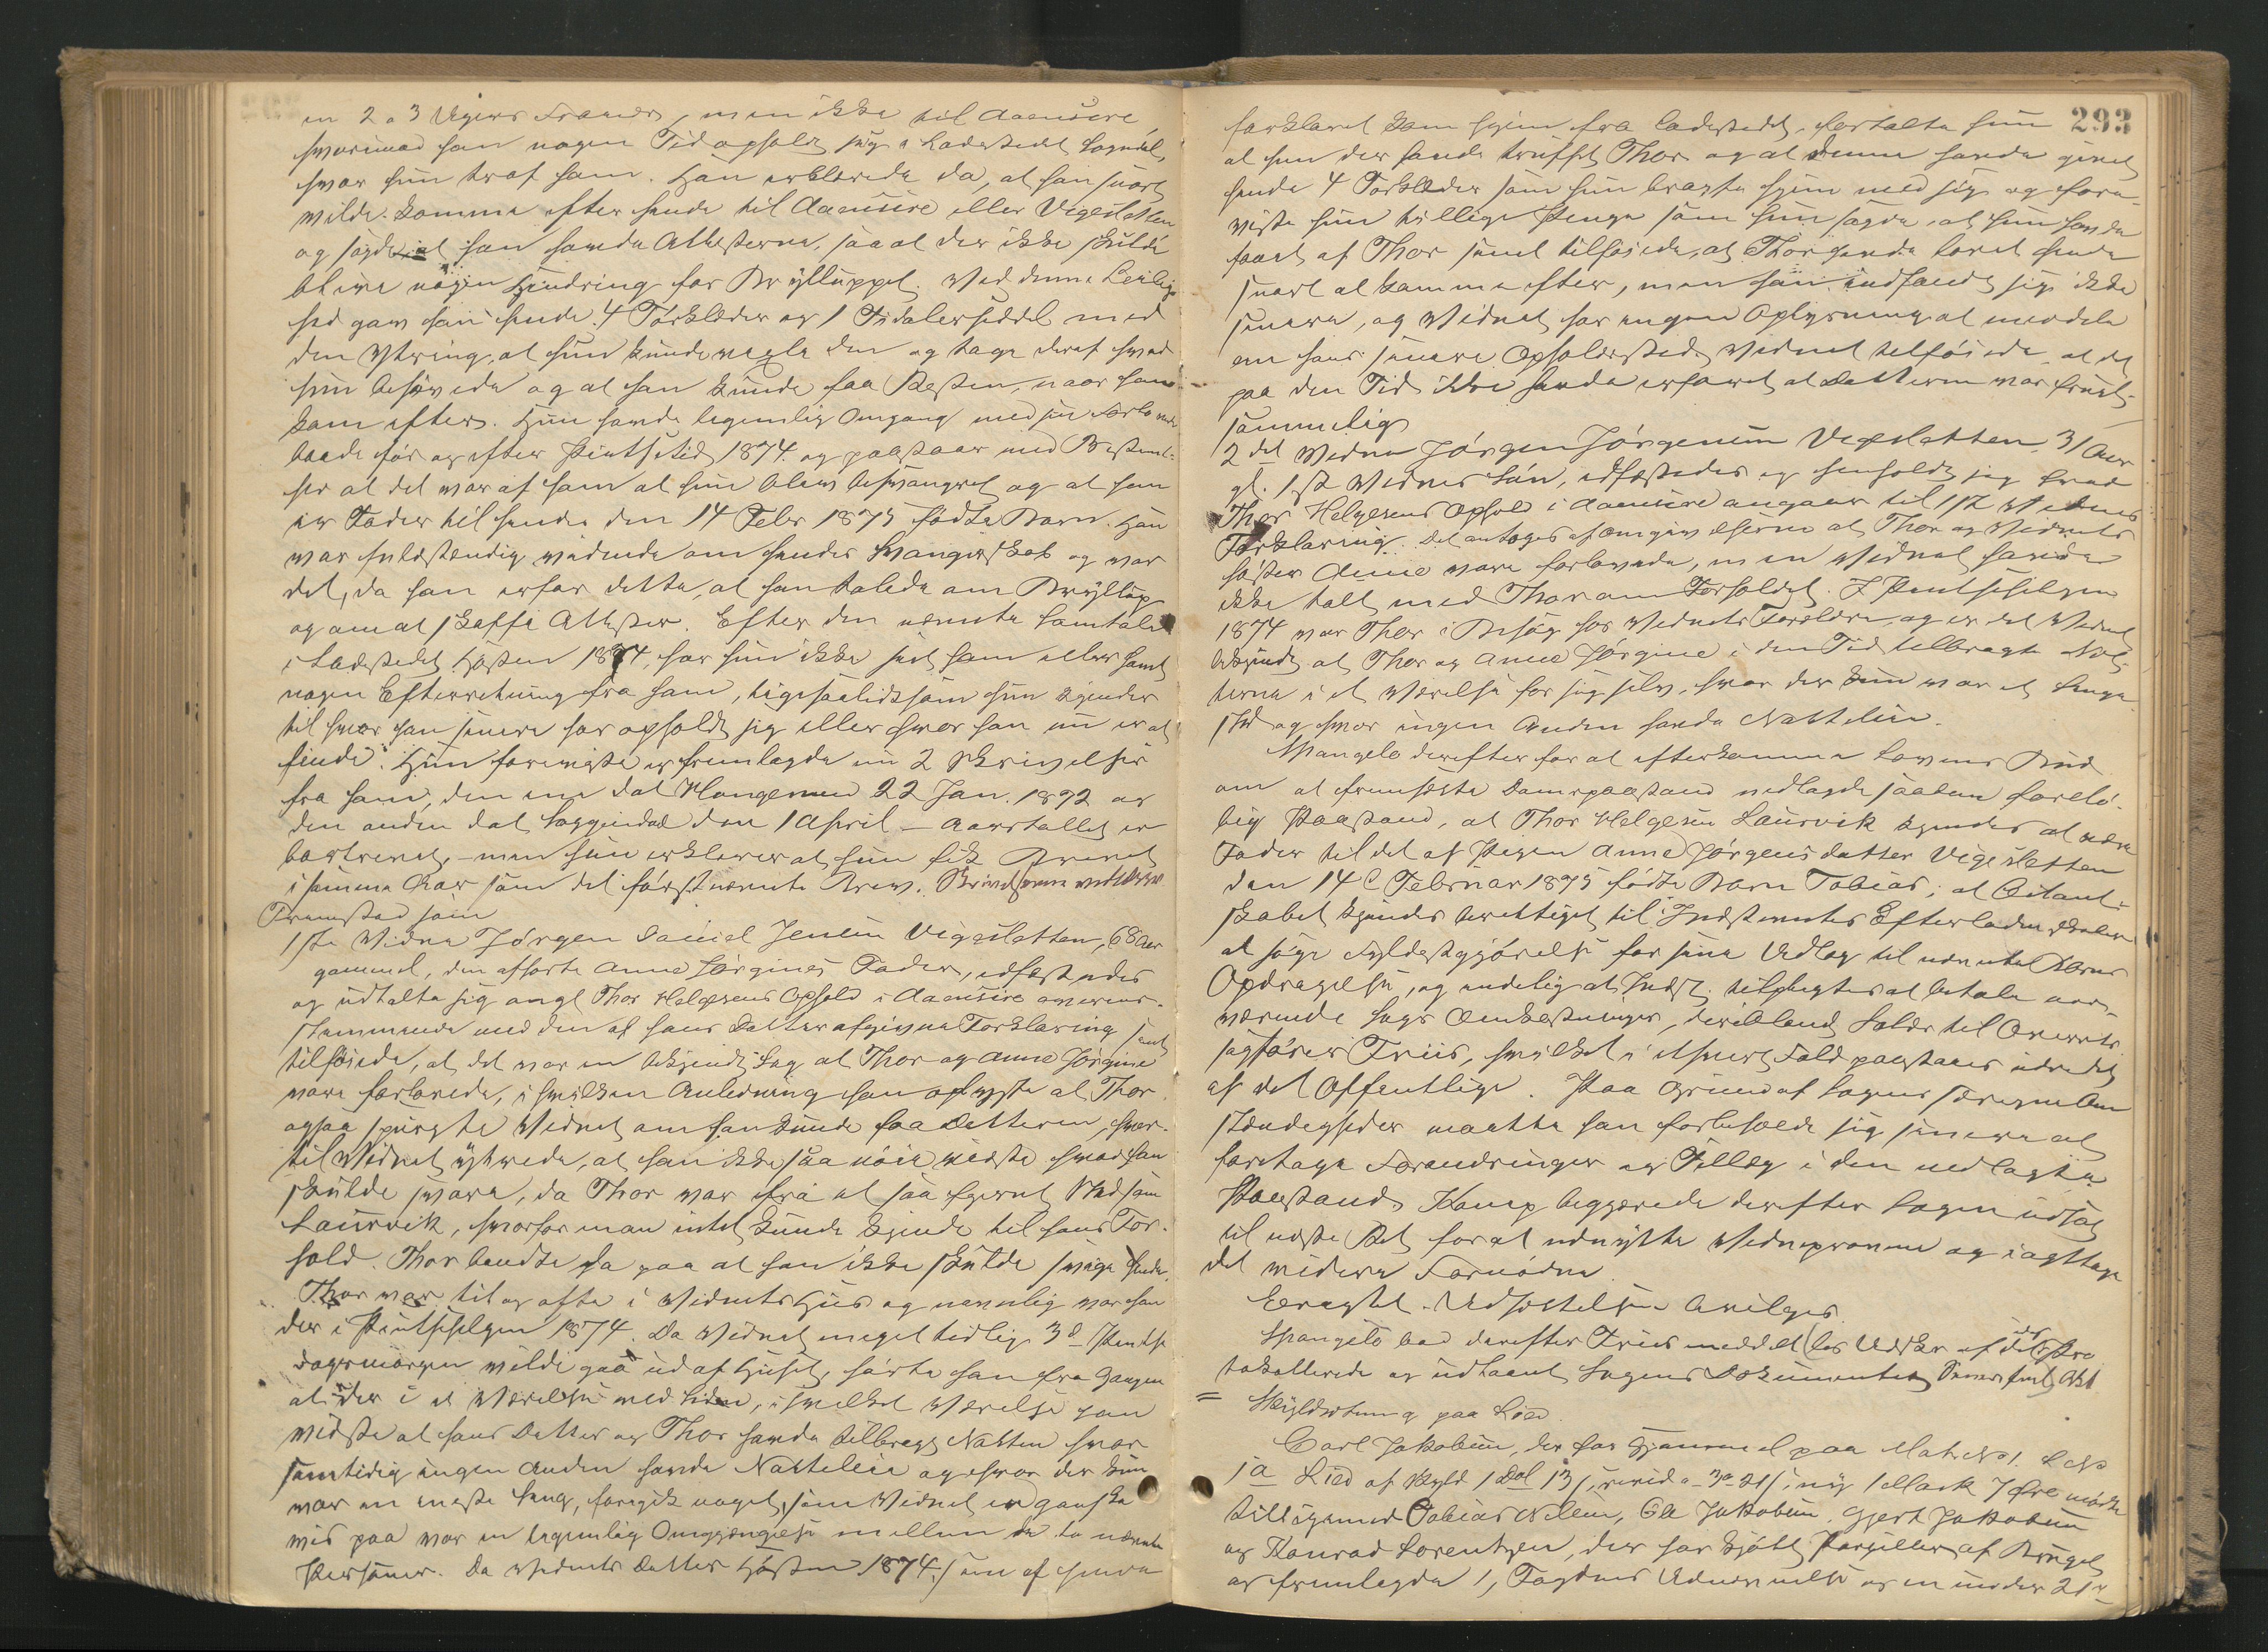 en 2 a 3 Ugers Fravær, men ikke til Aamsire
hvorimod han nogen Tid opholdt sig i Ladestedet Sogndal,
hvor hun traf ham. Han erklærede da, at han snart
vilde komme efter hende til Aanesire eller Vegesletten
og sagde at han havde Attesterne, saa at der ikke skulde
blive nogen Hindring for Brylluppet. Ved denne Leilig-
hed gav han hende 4 Tørklæder og 1 Fidalerseddel med
den Ytring, at hun kunde vexle den og tage deraf hvad
hun behøvede og at han kunde faa Resten, naar han
kom efter. Hun havde legemlig Omgang med sin Forlovede
baade før og efter Pintsetid 1874 og paastaar med Bestemt-
hed at det var af ham at hun blev besvangret og at han
er Fader til hendes den 14 Febr 1875 fødte Barn. Han
var fuldstændig vidende om hendes Svangerskab og var
det, da han erfor dette, at han talede om Bryllup
og om at skaffe Attester. Efter den nævnte Samtale
i Ladestedet Høsten 1874, har hun ikke seet ham eller havt
nogen Efterretning fra ham, ligesaalidt som hun kjender
til hvor han senere har opholdt sig eller hvor han nu er at
finde. Hun foreviste og fremlagde nu 2 Skrivelser
fra ham, den ene dat Mangersund 22 Jan. 1872 og
den anden dat Soggendal den 1 April – Aarstallet er
bortrevet, – men hun erklærer at hun fik Brevet
i samme Aar som det førstnævnte Brev.
Fremstod som
1ste Vidne Jørgen Daniel Jensen Vegesletten, 68 Aar
gammel, den afhørte Anne Jørgines Fader, edfæstedes
og udtalte sig angl Thor Helgesens Ophold i Aanesire overens-
stemmende med den af hans Datter afgivne Forklaring samt
tilføiede, at det var en bekjendt Sag at Thor og Anne Jørgine
vare forlovede, i hvilken Anledning han oplyste at Thor
ogsaa spurgte Vidnet om han kunde faa Datteren, hvor-
til Vidnet ytrede, at han ikke saa nøie vidste hvad han
skulde svare, da Thor var fra et saa fjernt Sted som
Laurvik, hvorfor man intet kunde kjende til hans For-
hold. Thor bandte da paa at han ikke skulde svige hende.
Thor var tit og ofte i Vidnets Hus og navnlig var han
der i Pintsehelgen 1874. Da Vidnet meget tidlig 3d Pintse
dagsmorgen vilde gaa ud af Huset, hørte han fra Gangen
at der i et Værelse ved Siden, i hvilket Værelse han
vidste at hans Datter og Thor havde tilbragt Natten hvor
samtidig ingen Anden havde Natteleie og hvor der kun
var en eneste Seng, foregik noget, som Vidnet er ganske
vis paa var en legemlig Omgjængelse mellem de to nævnte
Personer. Da Vidnets Datter Høsten 1874, som af hende
293
forklaret kom hjem fra Ladestedet, fortalte hun
at hun der havde truffet Thor og at denne havde givet
hende 4 Tørklæder som hun bragte hjem med sig og fore-
viste hun tillige Penge som hun sagde, at hun havde
faaet af Thor samt tilføiede, at Thor havde lovet hende
snart at komme efter, men han indfandt sig ikke
senere, og Vidnet har ingen Oplysning at meddele
om hans senere Opholdssted. Vidnet tilføiede, at det
paa den Tid ikke havde erfaret at Datteren var frugt-
sommelig
2det Vidne Jørgen Jørgensen Vegesletten, 31 Aar
gl. 1st Vidnes Søn, edfæstedes og henholdt sig hvad
Thor Helgesens Ophold i Aanesire angaar til 1st Vidnes
Forklaring. Det antoges af Omgivelserne at Thor og Vidnets
Søster Anne vare forlovede, men Vidnet havde
ikke talt med Thor om Forholdet. I Pintsehelgen
1874 var Thor i Besøg hos Vidnets Forældre og er det Vidnet
bekjendt at Thor og Anne Jørgine i den Tid tilbragte Næt-
terne i et Værelse for sig selv, hvor der kun var et Senge
sted og hvor ingen Anden havde Natteleie.
Spangelo derefter for at efterkomme Lovens Bud
om at fremsætte Domspaastand nedlagde saadan foreløb-
big Paastand, at Thor Helgesen Laurvik kjendes at være
Fader til det af Pigen Anne Jørgensdatter Vigesletten
den 14d Februar 1875 fødte Barn Tobias; at Citant-
skabet kjendes berettiget til i Indstevntes Efterladenskaber
at søge Fyldestgjørelse for sine Udlæg til nævnte Barns
Opdragelse, og endelig at Indst. tilpligtes at betale nær-
værende Sags Omkostninger, deriblandt Salær til Overrets
sagfører Friis, hvilket i ethvert Fald paastaaes udredet
af det Offentlige. Paa Grund af Sagens særegne Om
stændigheder maatte han forbeholde sig senere at
foretage Forandringer og Tillæg i den nedlagte
Paastand. Kamp begjærede derefter Sagen udsat
til næste Ret for at udnytte Vidneprovene og iagttage
det videre Fornødne.
Eragtet. Udsættelsen bevilges.
Spangelo bad derefter Friis meddelt lov Udskr af det Pro
tokollerede og udlaant Sagens Dokumenter
= Skyldsætning paa Lied.
Carl Jakobsen, der har Hjemmel paa Matr No 1. L No
1a Lied af Skyld 1 Dal – 3 – 21 ny 1 Mark 7 Øre mødte
tilligemed Tobias Nilsen, Ole Jakobsen, Gjert Jakobsen
og Konrad Lorentzen, der har kjøbt Parceller af Bruget
og fremlagde 1, Fogdens Udnævnelse og en under 21